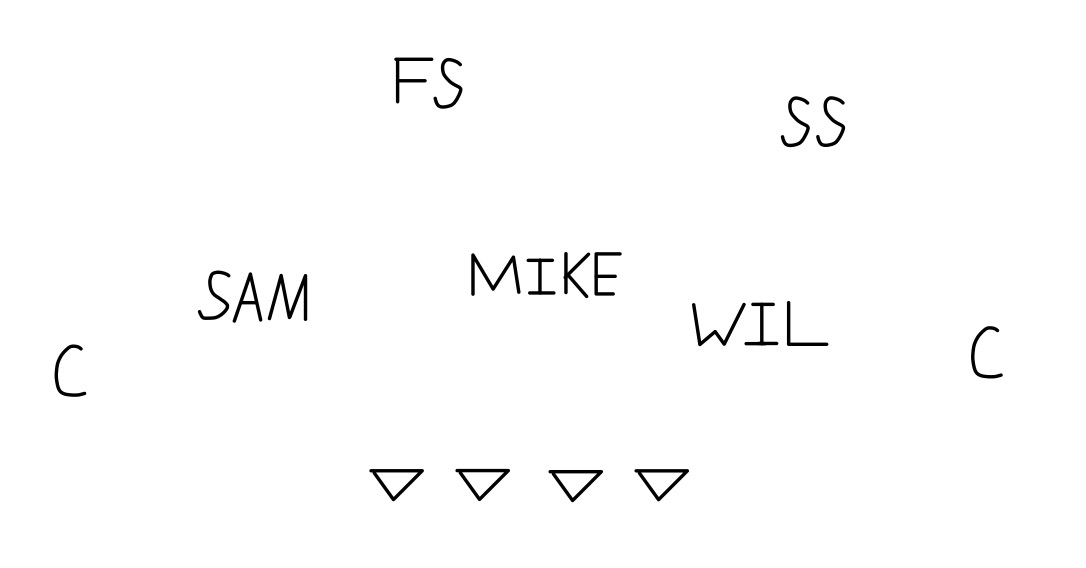 FS
SS
SAM
MIKE
WIL
C
C